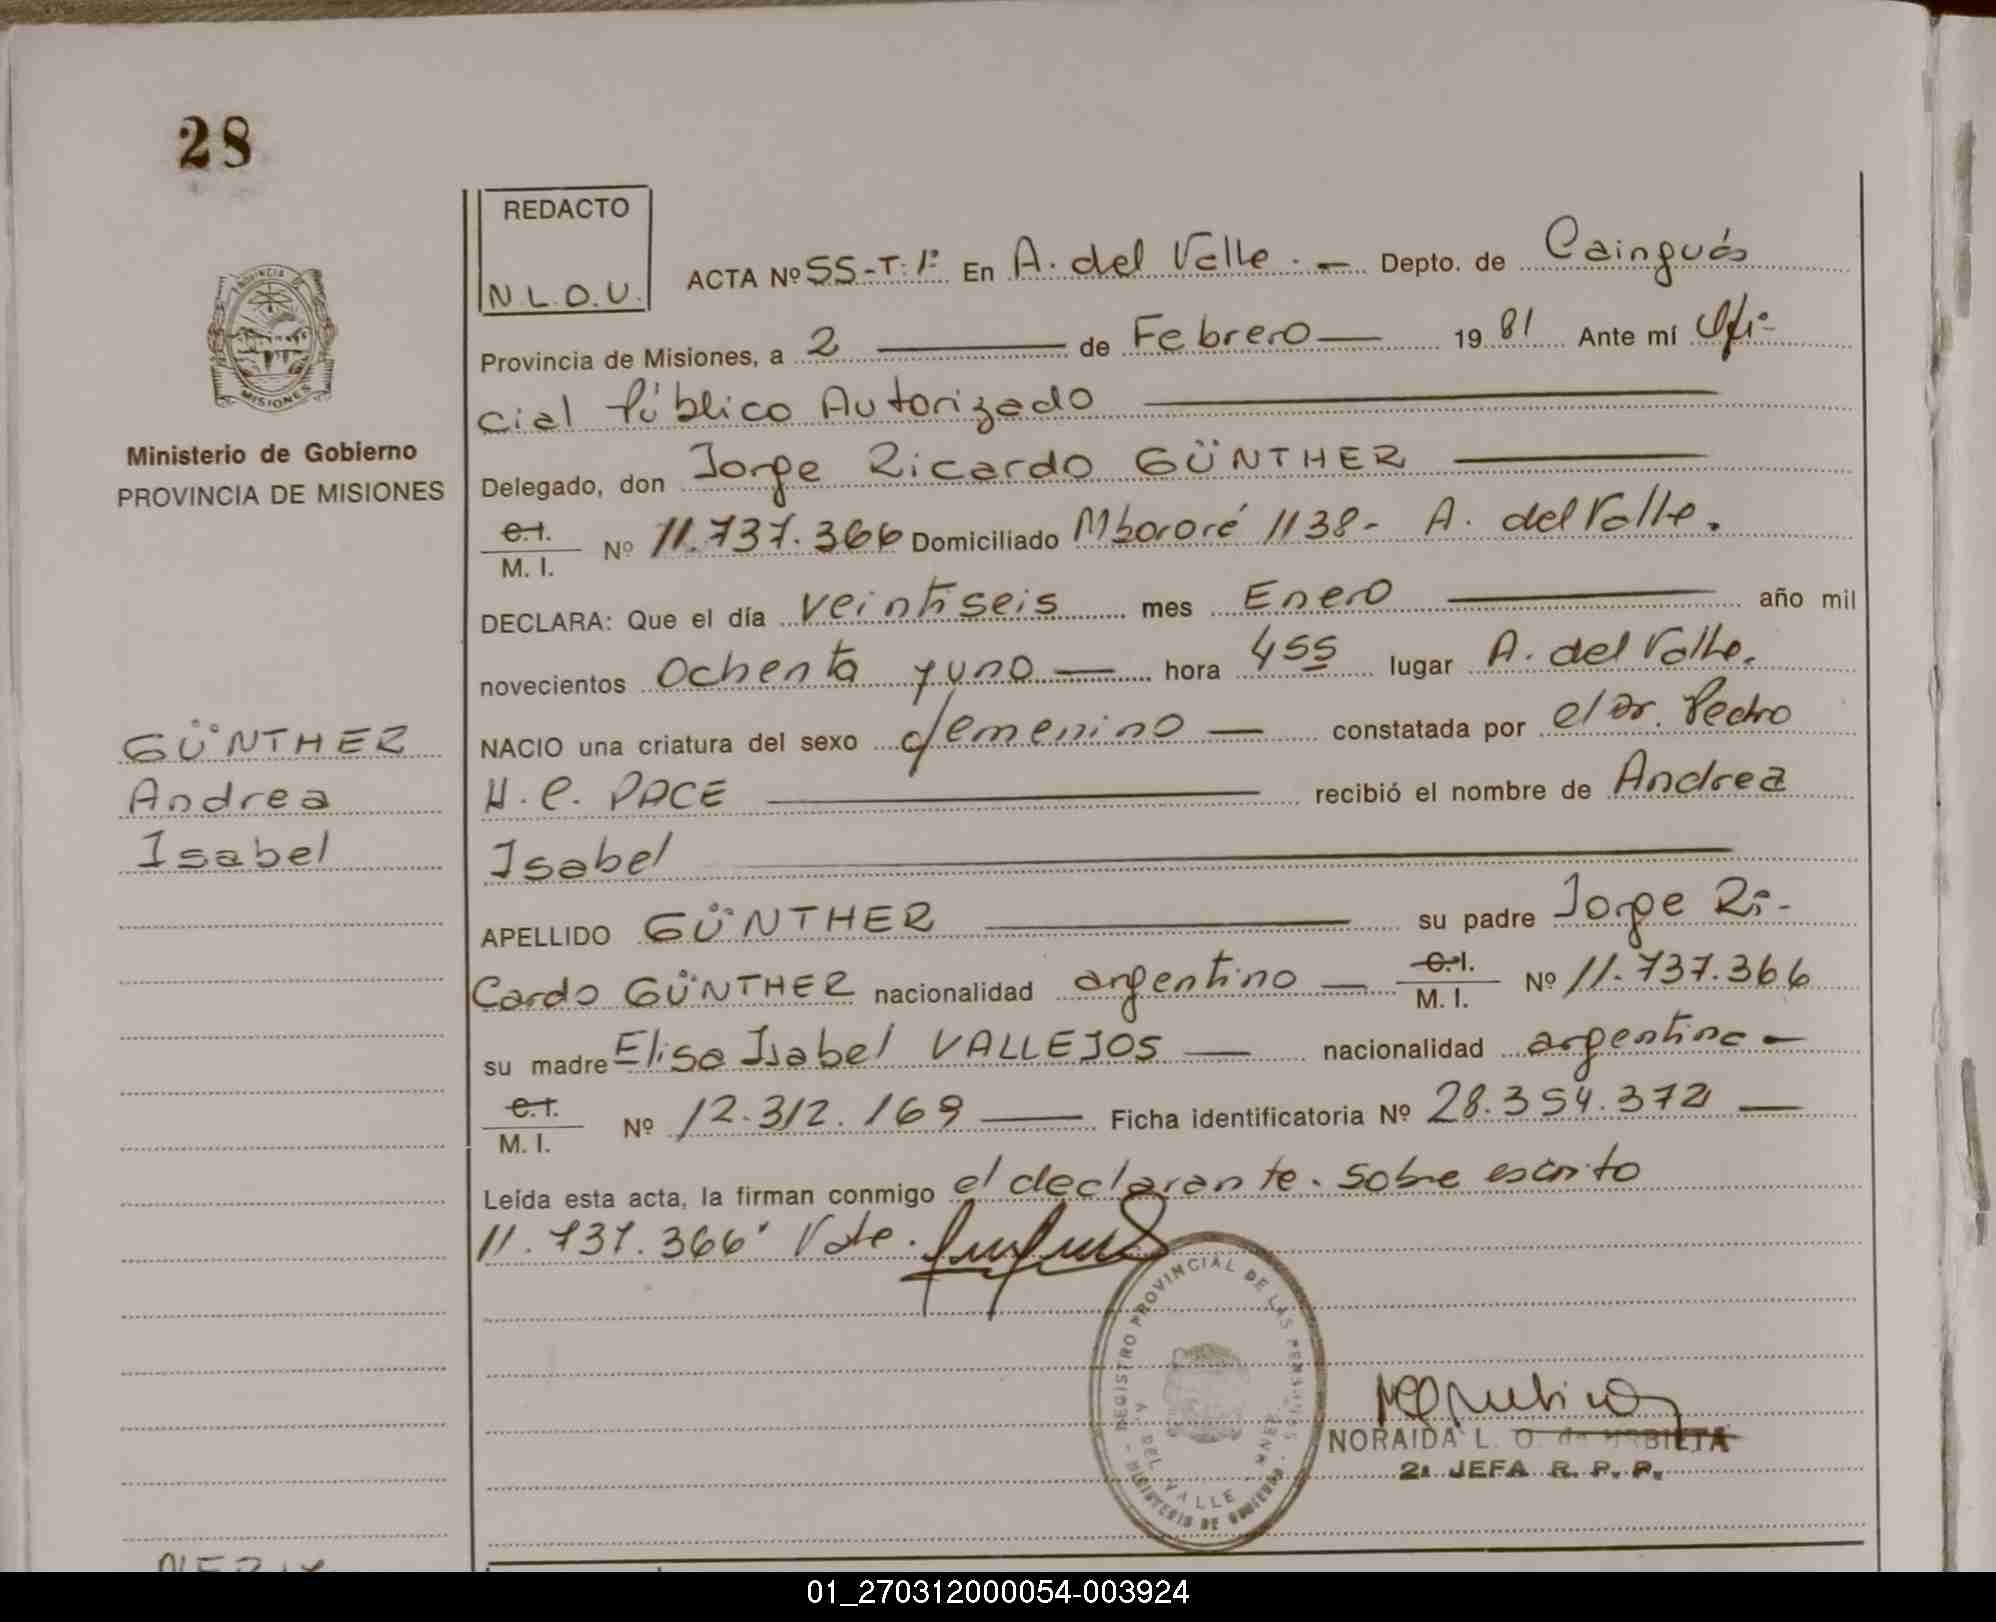 28
REDACTO
N.L.O.U.
PROVINCIA
MISIONES
Ministerio de Gobierno
PROVINCIA DE MISIONES
GÜNTHER
Andrea
Isabel
ACTA Nº 55-T:1º En A. del Valle. — Depto. de Cainguás
Provincia de Misiones, a 2 — de Febrero — 19 81 Ante mí Ofi-
cial Público Autorizado —
Delegado, don Jorge Ricardo GÜNTHER —
C.I. M. I. Nº 11.737.366 Domiciliado Mbororé 1138- A. del Valle.
DECLARA: Que el día veintiseis mes Enero — año mil
novecientos ochenta y uno — hora 455 lugar A. del Valle.
NACIO una criatura del sexo femenino — constatada por el Dr. Pedro
H. C. PACE — recibió el nombre de Andrea
Isabel —
APELLIDO GÜNTHER — su padre Jorge Ri-
cardo GÜNTHER nacionalidad argentino — C.I. M. I. Nº 11.737.366
su madre Elisa Isabel VALLEJOS — nacionalidad argentina —
C.I. M. I. Nº 12.312.169 — Ficha identificatoria Nº 28.354.372 —
Leída esta acta, la firman conmigo el declarante. Sobre escrito
11.737.366' Vale.
REGISTRO PROVINCIAL DE LAS PERSONAS
A. DEL VALLE
MINISTERIO DE GOBIERNO
NORAIDA L. O. de URBIETA
2ª JEFA R. P. P.
01_270312000054-003924